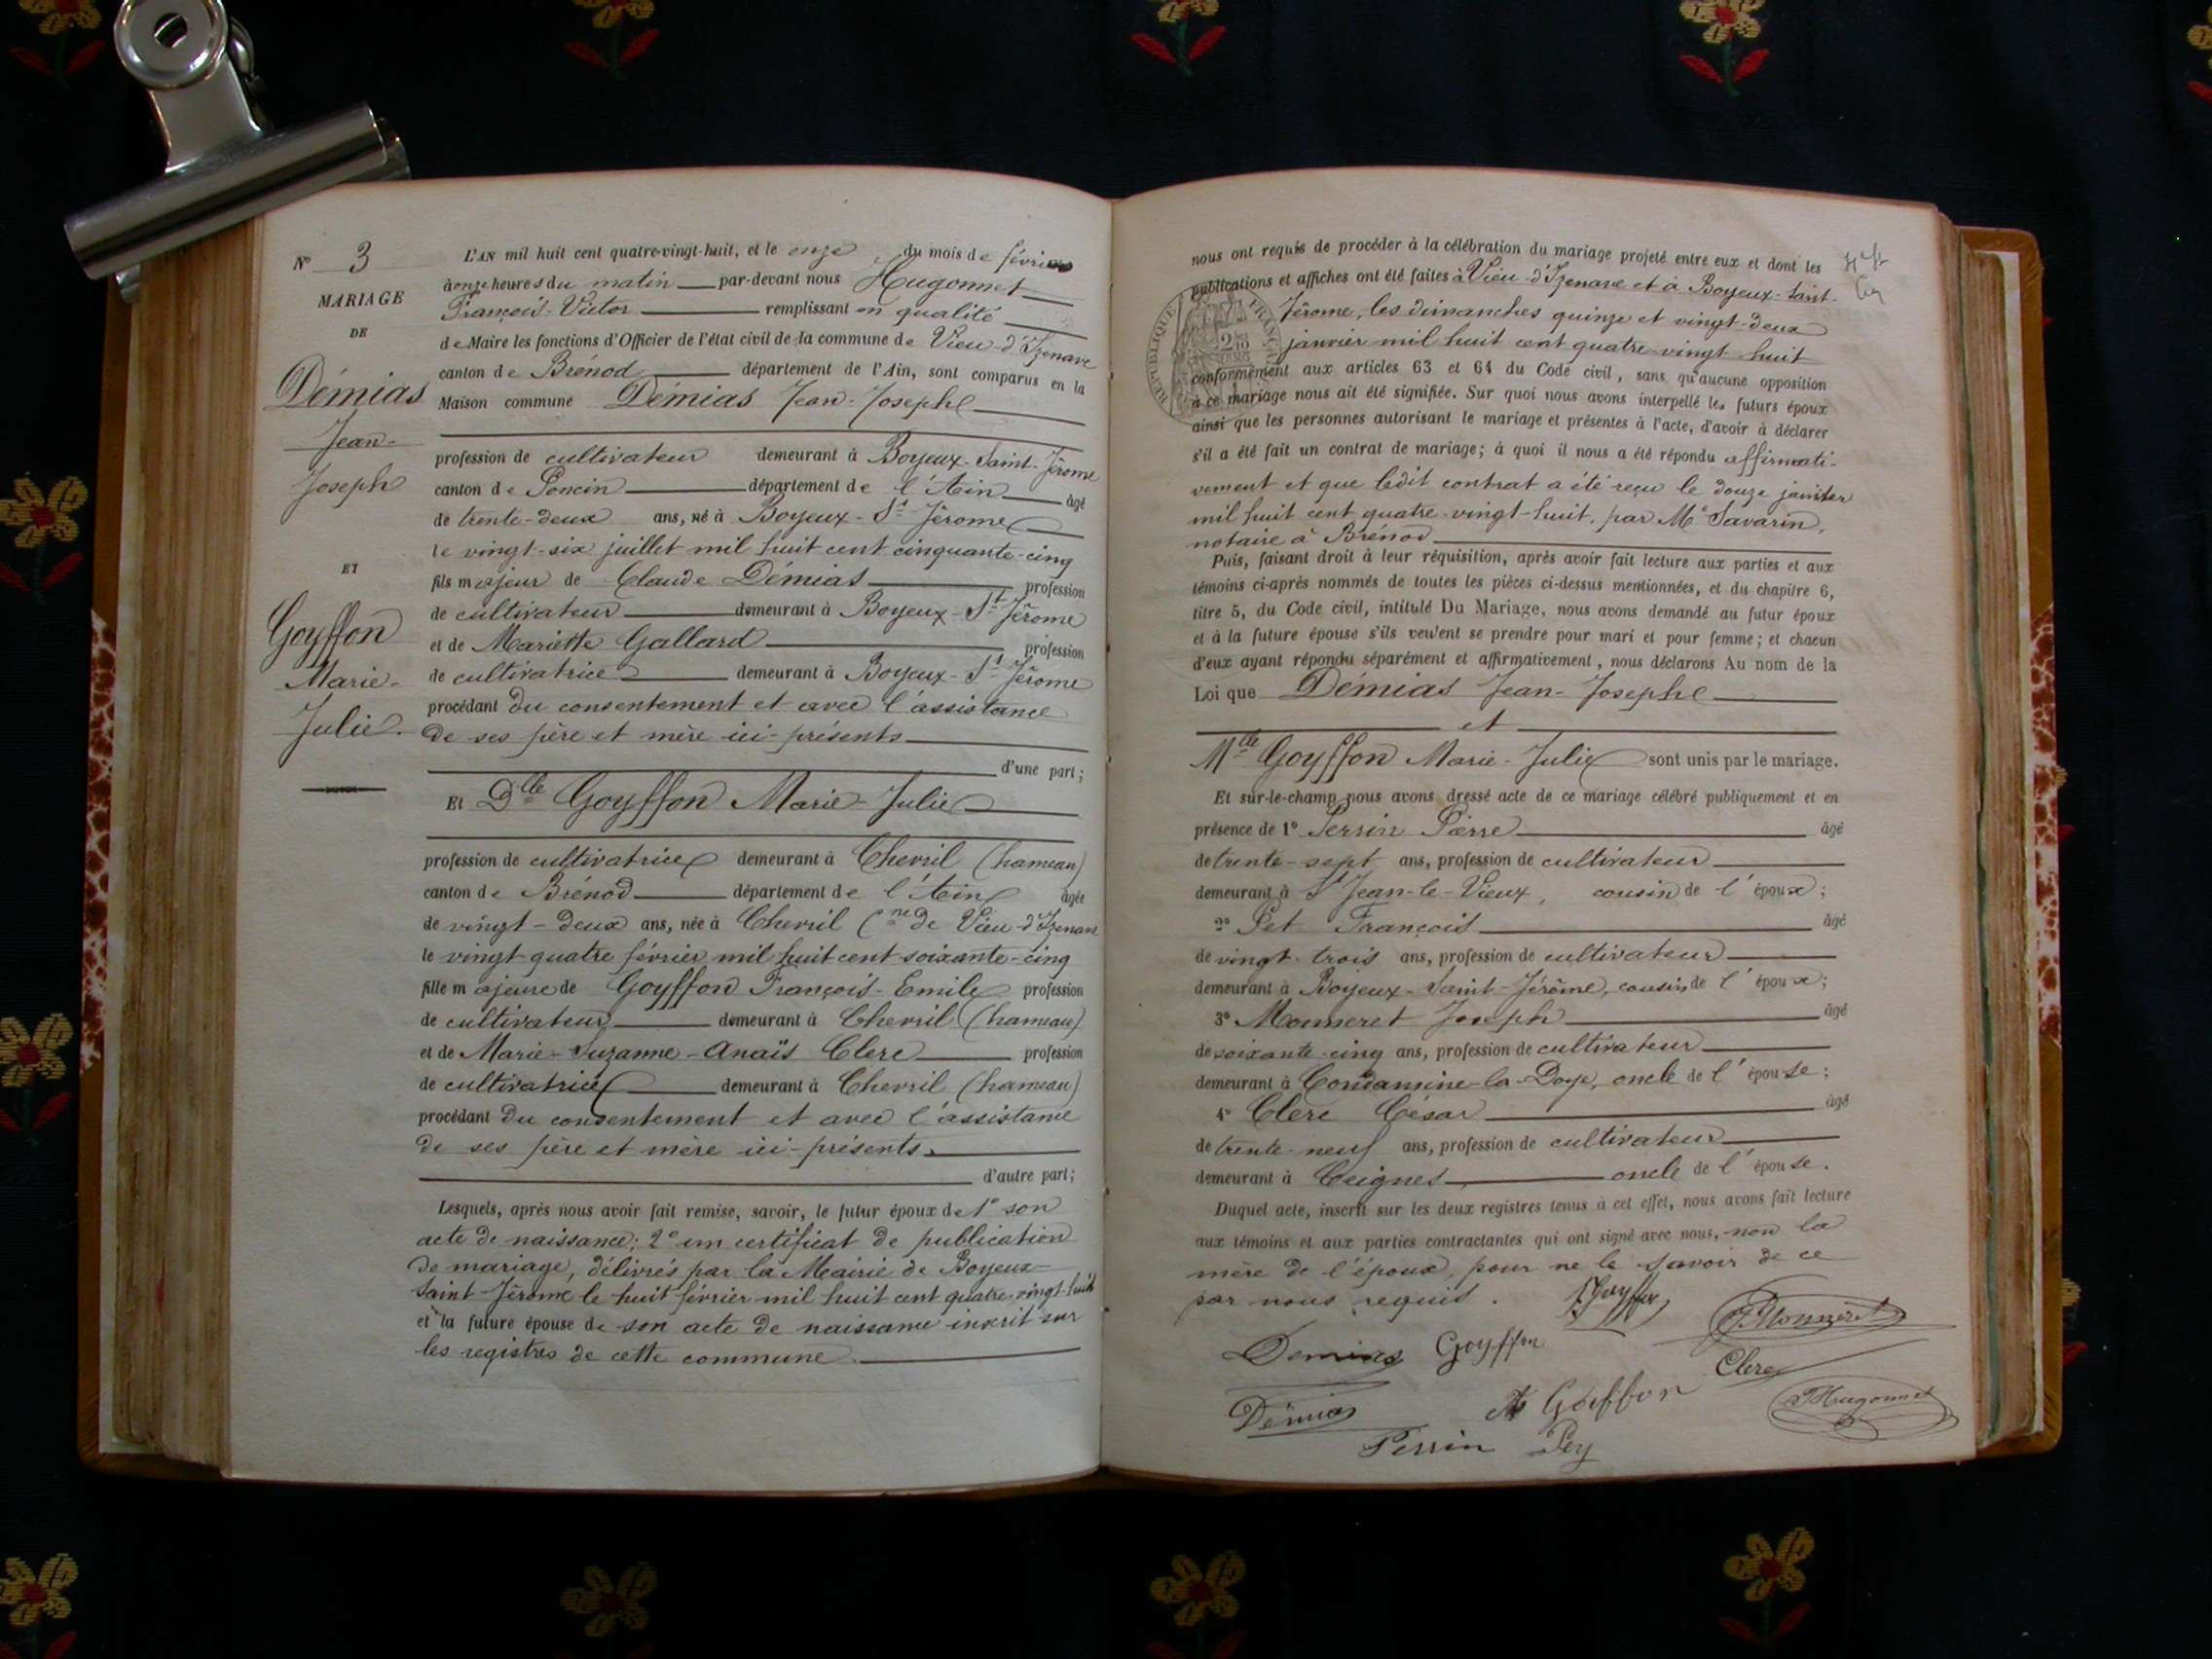 N° 3
MARIAGE
DE
Démias
Jean-
Joseph
ET
Goyffon
Marie-
Julie.
L'AN mil huit cent quatre-vingt-huit, et le onze du mois de février
à onze heures du matin par-devant nous Hugonnet
François-Victor remplissant en qualité
de Maire les fonctions d'Officier de l'état civil de la commune de Vieu-d'Izenave
canton de Brénod département de l'Ain, sont comparus en la
Maison commune Démias Jean-Joseph
profession de cultivateur demeurant à Boyeux-Saint-Jérome
canton de Poncin département de l'Ain âgé
de trente-deux ans, né à Boyeux-St Jérome
le vingt-six juillet mil huit cent cinquante-cinq
fils majeur de Claude Démias profession
de cultivateur demeurant à Boyeux-St Jérome
et de Mariette Gallard profession
de cultivatrice demeurant à Boyeux-St Jérome
procédant du consentement et avec l'assistance
de ses père et mère ici-présents
d'une part;
Et Dlle Goyffon Marie-Julie
profession de cultivatrice demeurant à Chevril (hameau)
canton de Brénod département de l'Ain âgée
de vingt-deux ans, née à Chevril Cne de Vieu-d'Izenave
le vingt quatre février mil huit cent soixante-cinq
fille majeure de Goyffon François-Emile profession
de cultivateur demeurant à Chevril (hameau)
et de Marie-Suzanne-Anaïs Clerc profession
de cultivatrice demeurant à Chevril (hameau)
procédant du consentement et avec l'assistance
de ses père et mère ici-présents.
d'autre part;
Lesquels, après nous avoir fait remise, savoir, le futur époux de 1° son
acte de naissance; 2° un certificat de publication
de mariage, délivrés par la Mairie de Boyeux-
Saint-Jérome le huit février mil huit cent quatre-vingt-huit
et la future épouse de son acte de naissance inscrit sur
les registres de cette commune.
nous ont requis de procéder à la célébration du mariage projeté entre eux et dont les
publications et affiches ont été faites à Vieu-d'Izenave et à Boyeux-Saint-
Jérome, les dimanches quinze et vingt-deux
janvier mil huit cent quatre-vingt-huit
RÉPUBLIQUE FRANÇAISE
conformément aux articles 63 et 64 du Code civil, sans qu'aucune opposition
à ce mariage nous ait été signifiée. Sur quoi nous avons interpellé les futurs époux
ainsi que les personnes autorisant le mariage et présentes à l'acte, d'avoir à déclarer
s'il a été fait un contrat de mariage; à quoi il nous a été répondu affirmati-
vement et que ledit contrat a été reçu le douze janvier
mil huit cent quatre-vingt-huit, par Me Savarin,
notaire à Brénod
Puis, faisant droit à leur réquisition, après avoir fait lecture aux parties et aux
témoins ci-après nommés de toutes les pièces ci-dessus mentionnées, et du chapitre 6,
titre 5, du Code civil, intitulé Du Mariage, nous avons demandé au futur époux
et à la future épouse s'ils veulent se prendre pour mari et pour femme; et chacun
d'eux ayant répondu séparément et affirmativement, nous déclarons Au nom de la
Loi que Démias Jean-Joseph
et
Mlle Goyffon Marie-Julie sont unis par le mariage.
Et sur-le-champ nous avons dressé acte de ce mariage célébré publiquement et en
présence de 1° Perrin Pierre âgé
de trente-sept ans, profession de cultivateur
demeurant à St Jean-le-Vieux, cousin de l'époux;
2° Pet François âgé
de vingt-trois ans, profession de cultivateur
demeurant à Boyeux-Saint-Jérôme, cousin de l'époux;
3° Monneret Joseph âgé
de soixante-cinq ans, profession de cultivateur
demeurant à Condamine-la-Doye, oncle de l'épouse;
4° Clerc César âgé
de trente-neuf ans, profession de cultivateur
demeurant à Ceignes, oncle de l'épouse.
Duquel acte, inscrit sur les deux registres tenus à cet effet, nous avons fait lecture
aux témoins et aux parties contractantes qui ont signé avec nous, non la
mère de l'époux, pour ne le savoir de ce
par nous requis.
Goyffon
J. Monneret
Demias Goyffon
Clerc
Démias
Goiffon
Hugonnet
Perrin Pey